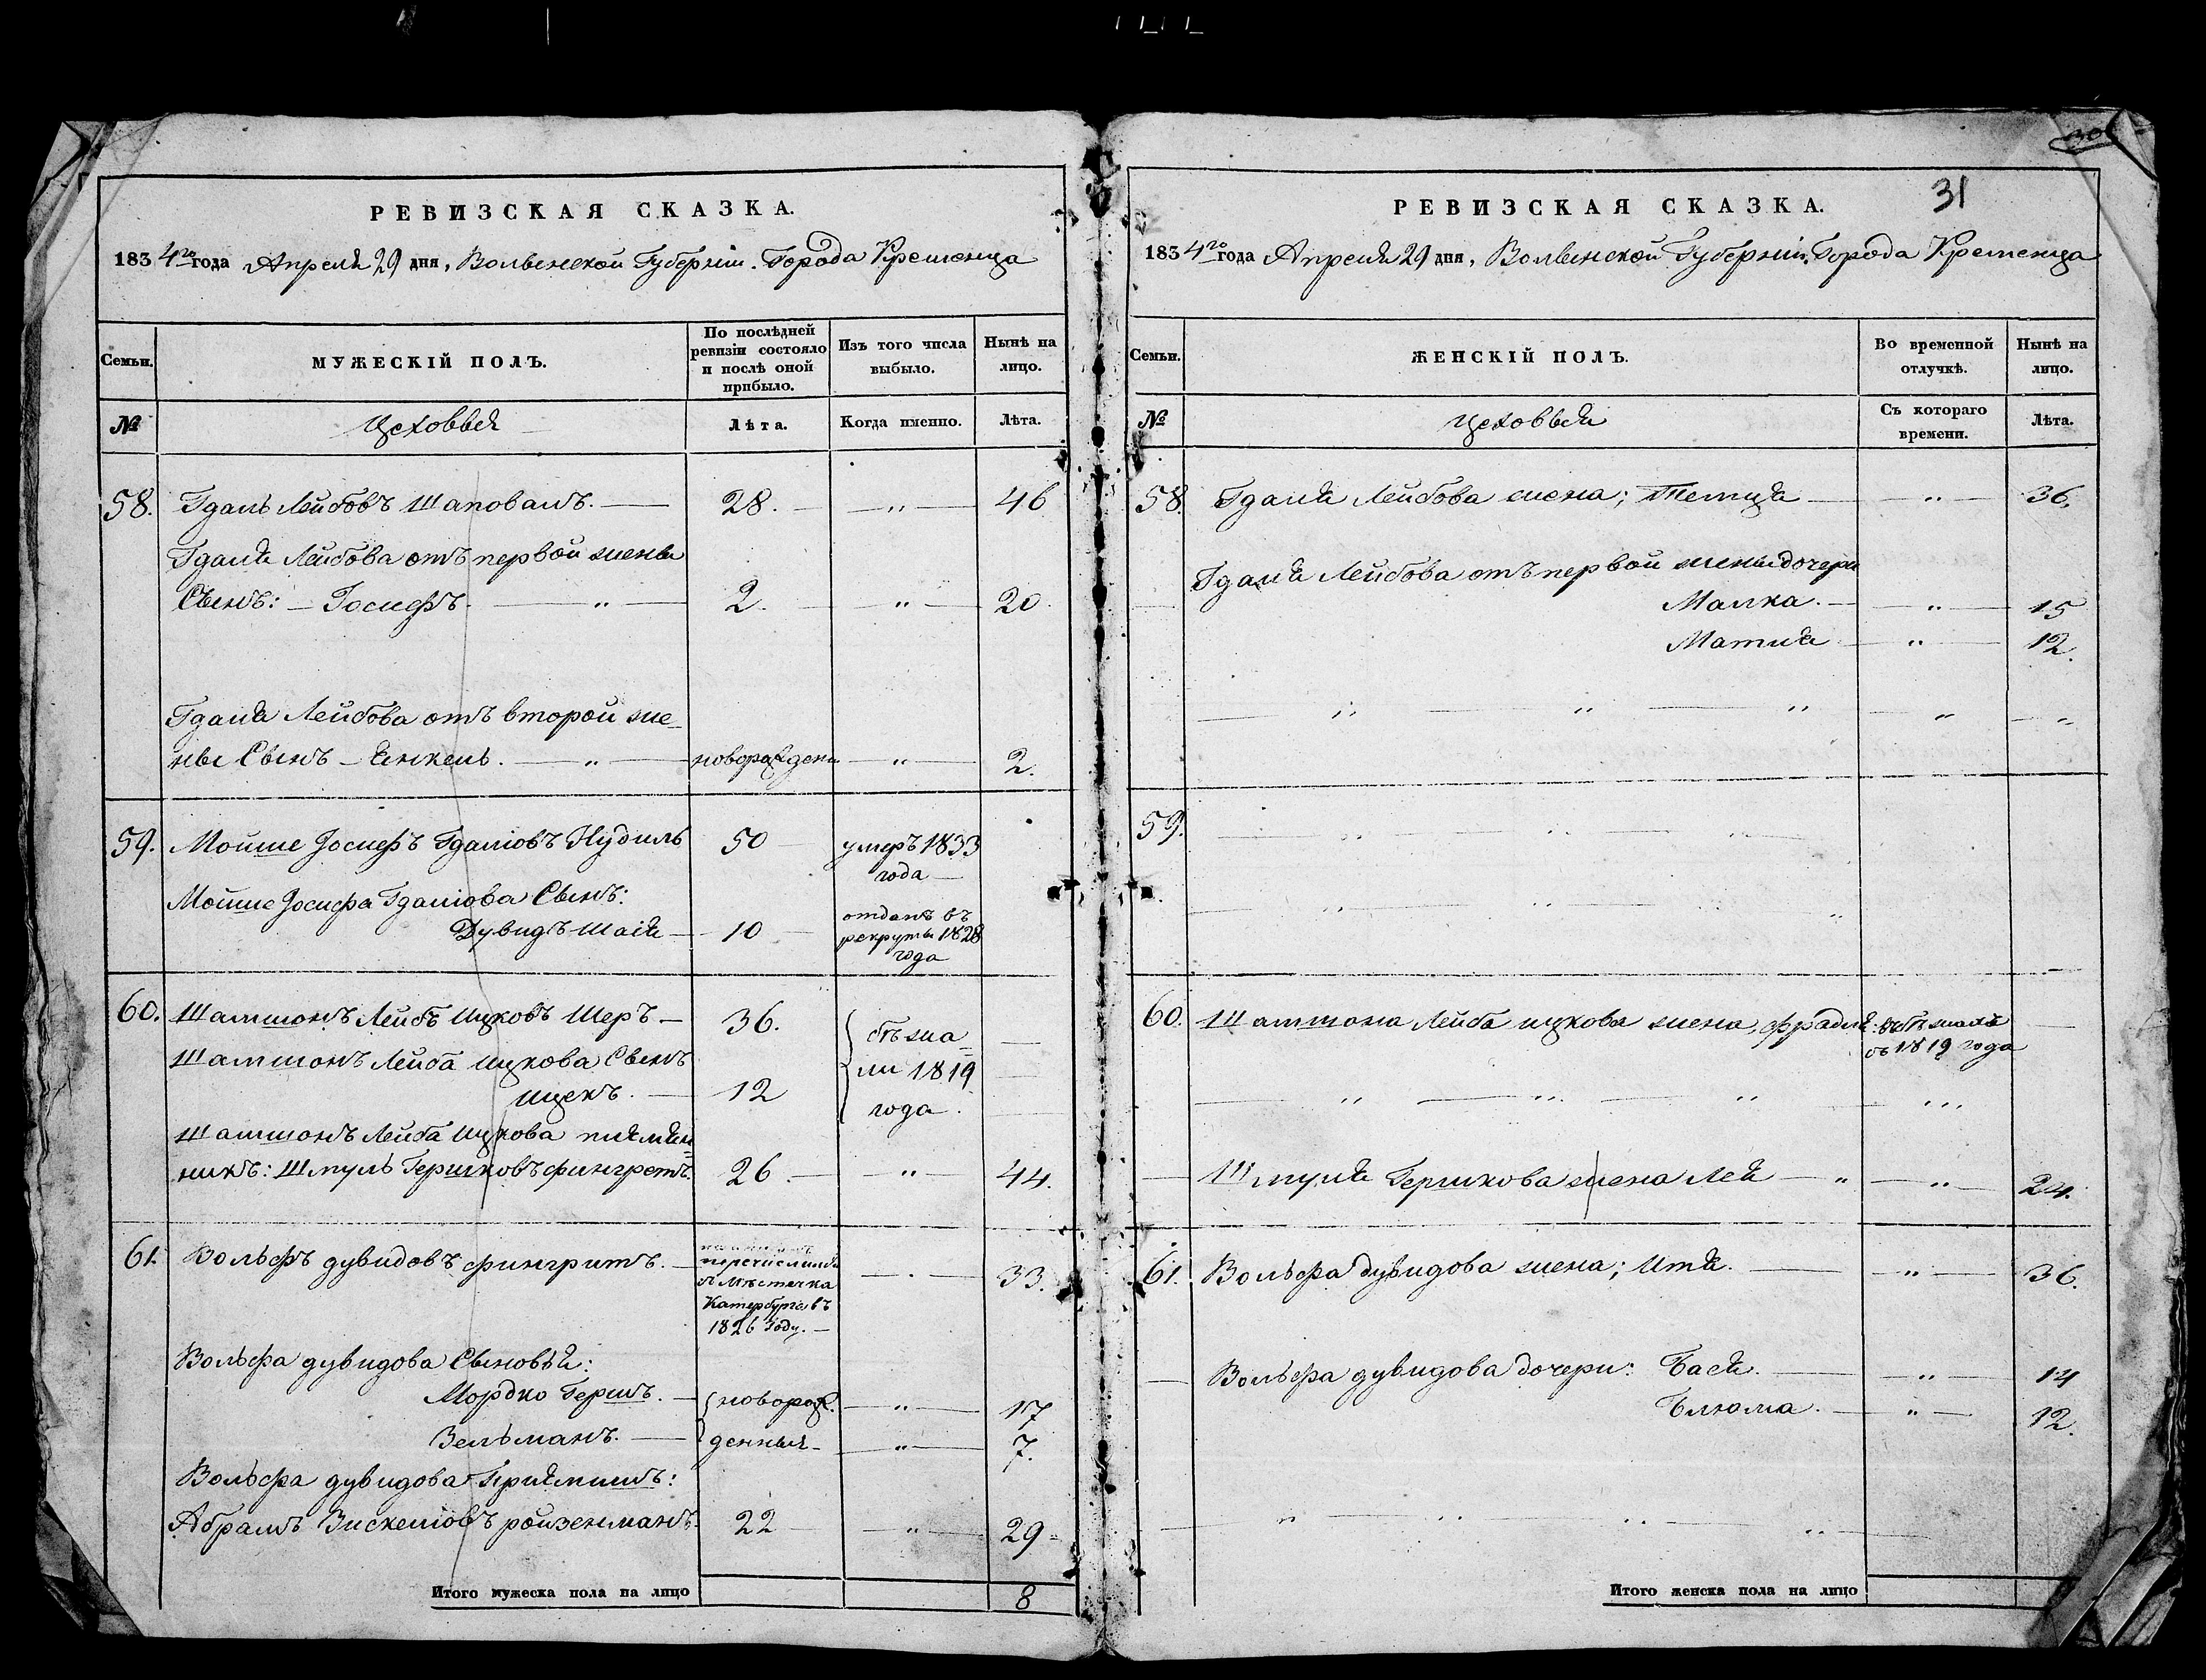 30
РЕВИЗСКАЯ СКАЗКА.
1834го года Апреля 29 дня, Волынской Губернiи. Города Кременца
Семьи.
МУЖЕСКІЙ ПОЛЪ.
По послѣдней ревизіи состояло и послѣ оной прибыло.
Изъ того числа выбыло.
Нынѣ на лицо.
№
Цеховыя
Лѣта.
Когда именно.
Лѣта.
58. Гдаль Лейбовъ Шаповалъ. 28. 46
Гдаля Лейбова отъ первой жены
Сынъ: Iосифъ. 2. 20.
Гдаля Лейбова отъ второй же-
ны Сынъ - Янкель. новорожден 2.
59. Мойше Iосифъ Гдаліовъ Нудиль 50 умеръ 1833
года
Мойше Iосифа Гдаліова Сынъ:
Дувидъ Шаія 10 отданъ въ
рекруты 1828
года
60. Шамшонъ Лейбъ Ицковъ Шеръ 36. бѣжа
Шамшонъ Лейба Ицкова Сынъ
ли 1819
Ицекъ. 12
года.
Шамшонъ Лейба Ицкова плямян
никъ: Шмуль Гершковъ фингретъ. 26. 44.
61. Вольфъ дувидовъ фингритъ. 33.
перечислился
Мѣстечка
Катербурга въ
1826 Году.
Вольфа дувидова Сыновья:
Мордко Гершъ. новорож. 17
Зельманъ. денныя 7.
Вольфа дувидова Пріямишъ:
Абрамъ Зискеліовъ ройзенманъ. 22 29
Итого мужеска пола на лицо 8
РЕВИЗСКАЯ СКАЗКА.
31
1834го года Апреля 29 дня, Волынской Губернiи. Города Кременца
Семьи.
ЖЕНСКІЙ ПОЛЪ.
Во временной отлучкѣ.
Нынѣ на лицо.
№
Цеховыя
Съ котораго времени.
Лѣта.
58. Гдаля Лейбова жена; Темця 36.
Гдаля Лейбова отъ первой жены дочери
Малка. 15
Матля 12.
59.
60. Шамшона Лейба ицкова жена, фрадля: въ бѣжахъ
съ 1819 года
Шмуля Гершкова жена Лея 24.
61. Вольфа дувидова жена; Итя. 36.
Вольфа дувидова дочери: Бася. 14
Блюма. 12.
Итого женска пола на лицо